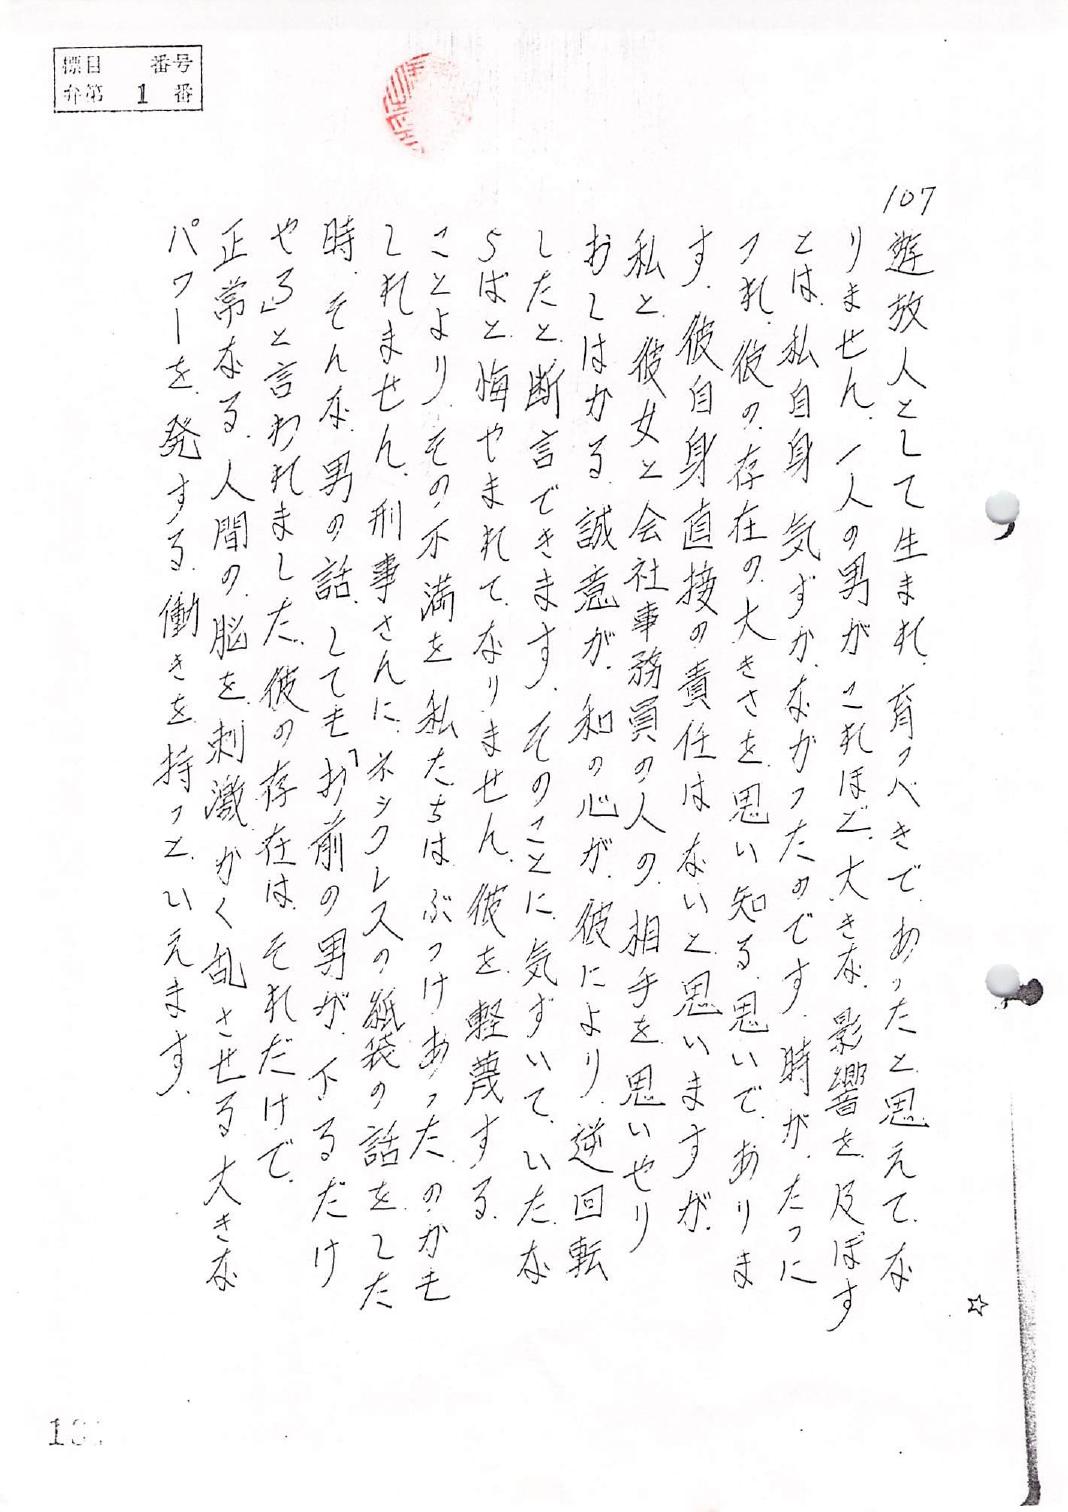 標目 番号
弁第 1 番
107
遊放人として生まれ、育つべきで、あったと思えて、な
りません、一人の男が、これほど、大きな、影響を、及ぼす
とは、私自身、気ずか、なかったのです、時が、たつに
つれ、彼の、存在の、大きさを、思い知る、思いで、ありま
す、彼自身、直接の責任は、ないと、思いますが、
私と、彼女と会社事務員の人の、相手を、思いやり
おしはかる、誠意が、和の心が、彼により、逆回転
したと断言できます、そのことに、気ずいて、いたな
らばと、悔やまれて、なりません、彼を、軽蔑する
ことより、その不満を、私たちは、ぶつけあったのかも
しれません、刑事さんに、ネックレスの紙袋の話をした
時、そんな、男の話、しても「お前の男が、下るだけ
やろ」と言われました、彼の存在は、それだけで、
正常なる、人間の、脳を、刺激、かく乱させる、大きな
パワーを、発する、働きを、持つと、いえます、
☆